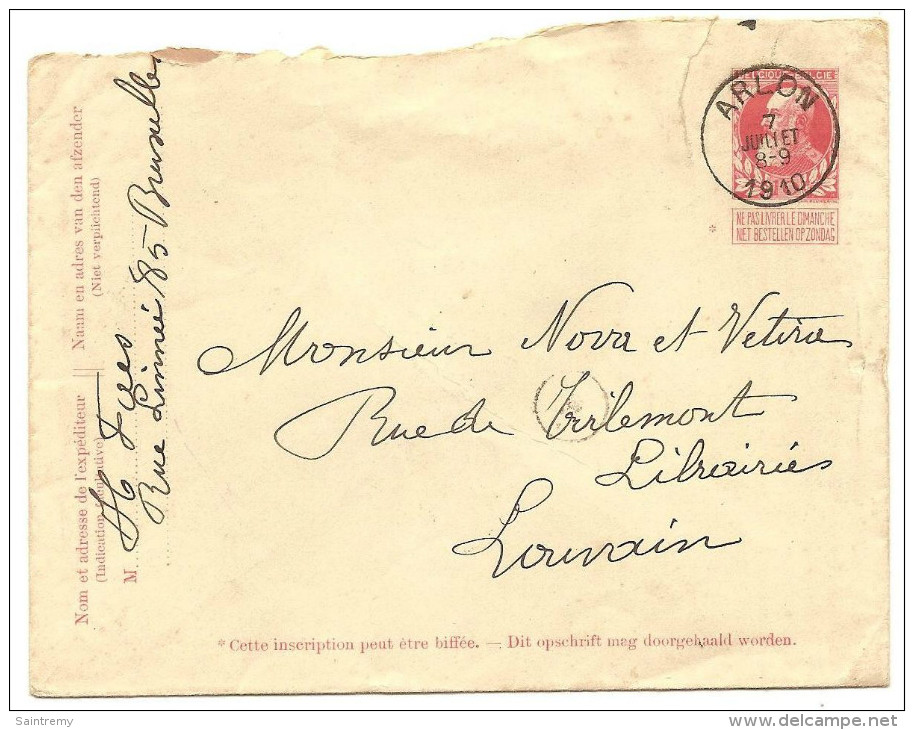 BELGIQUE BELGIE
ARLON
7
JUILLET
8-9
1910
NE PAS LIVRER LE DIMANCHE
NIET BESTELLEN OP ZONDAG
*
Nom et adresse de l'expéditeur || Naam en adres van den afzender
(Indication facultative) (Niet verplichtend)
M. H Fves
Rue Linneé 85 Bruxelles
Monsieur Nova et Vetera
Rue de Tirlemont
Librairies
Louvain
* Cette inscription peut être biffée. — Dit opschrift mag doorgehaald worden.
Saintremy
www.delcampe.net